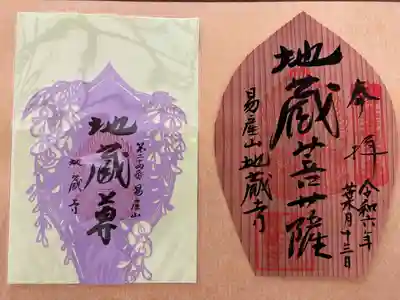 第二十四番 易産山
地蔵尊
地蔵寺
奉拝
令和六年
葉月十三日
地蔵菩薩
易産山 地蔵寺